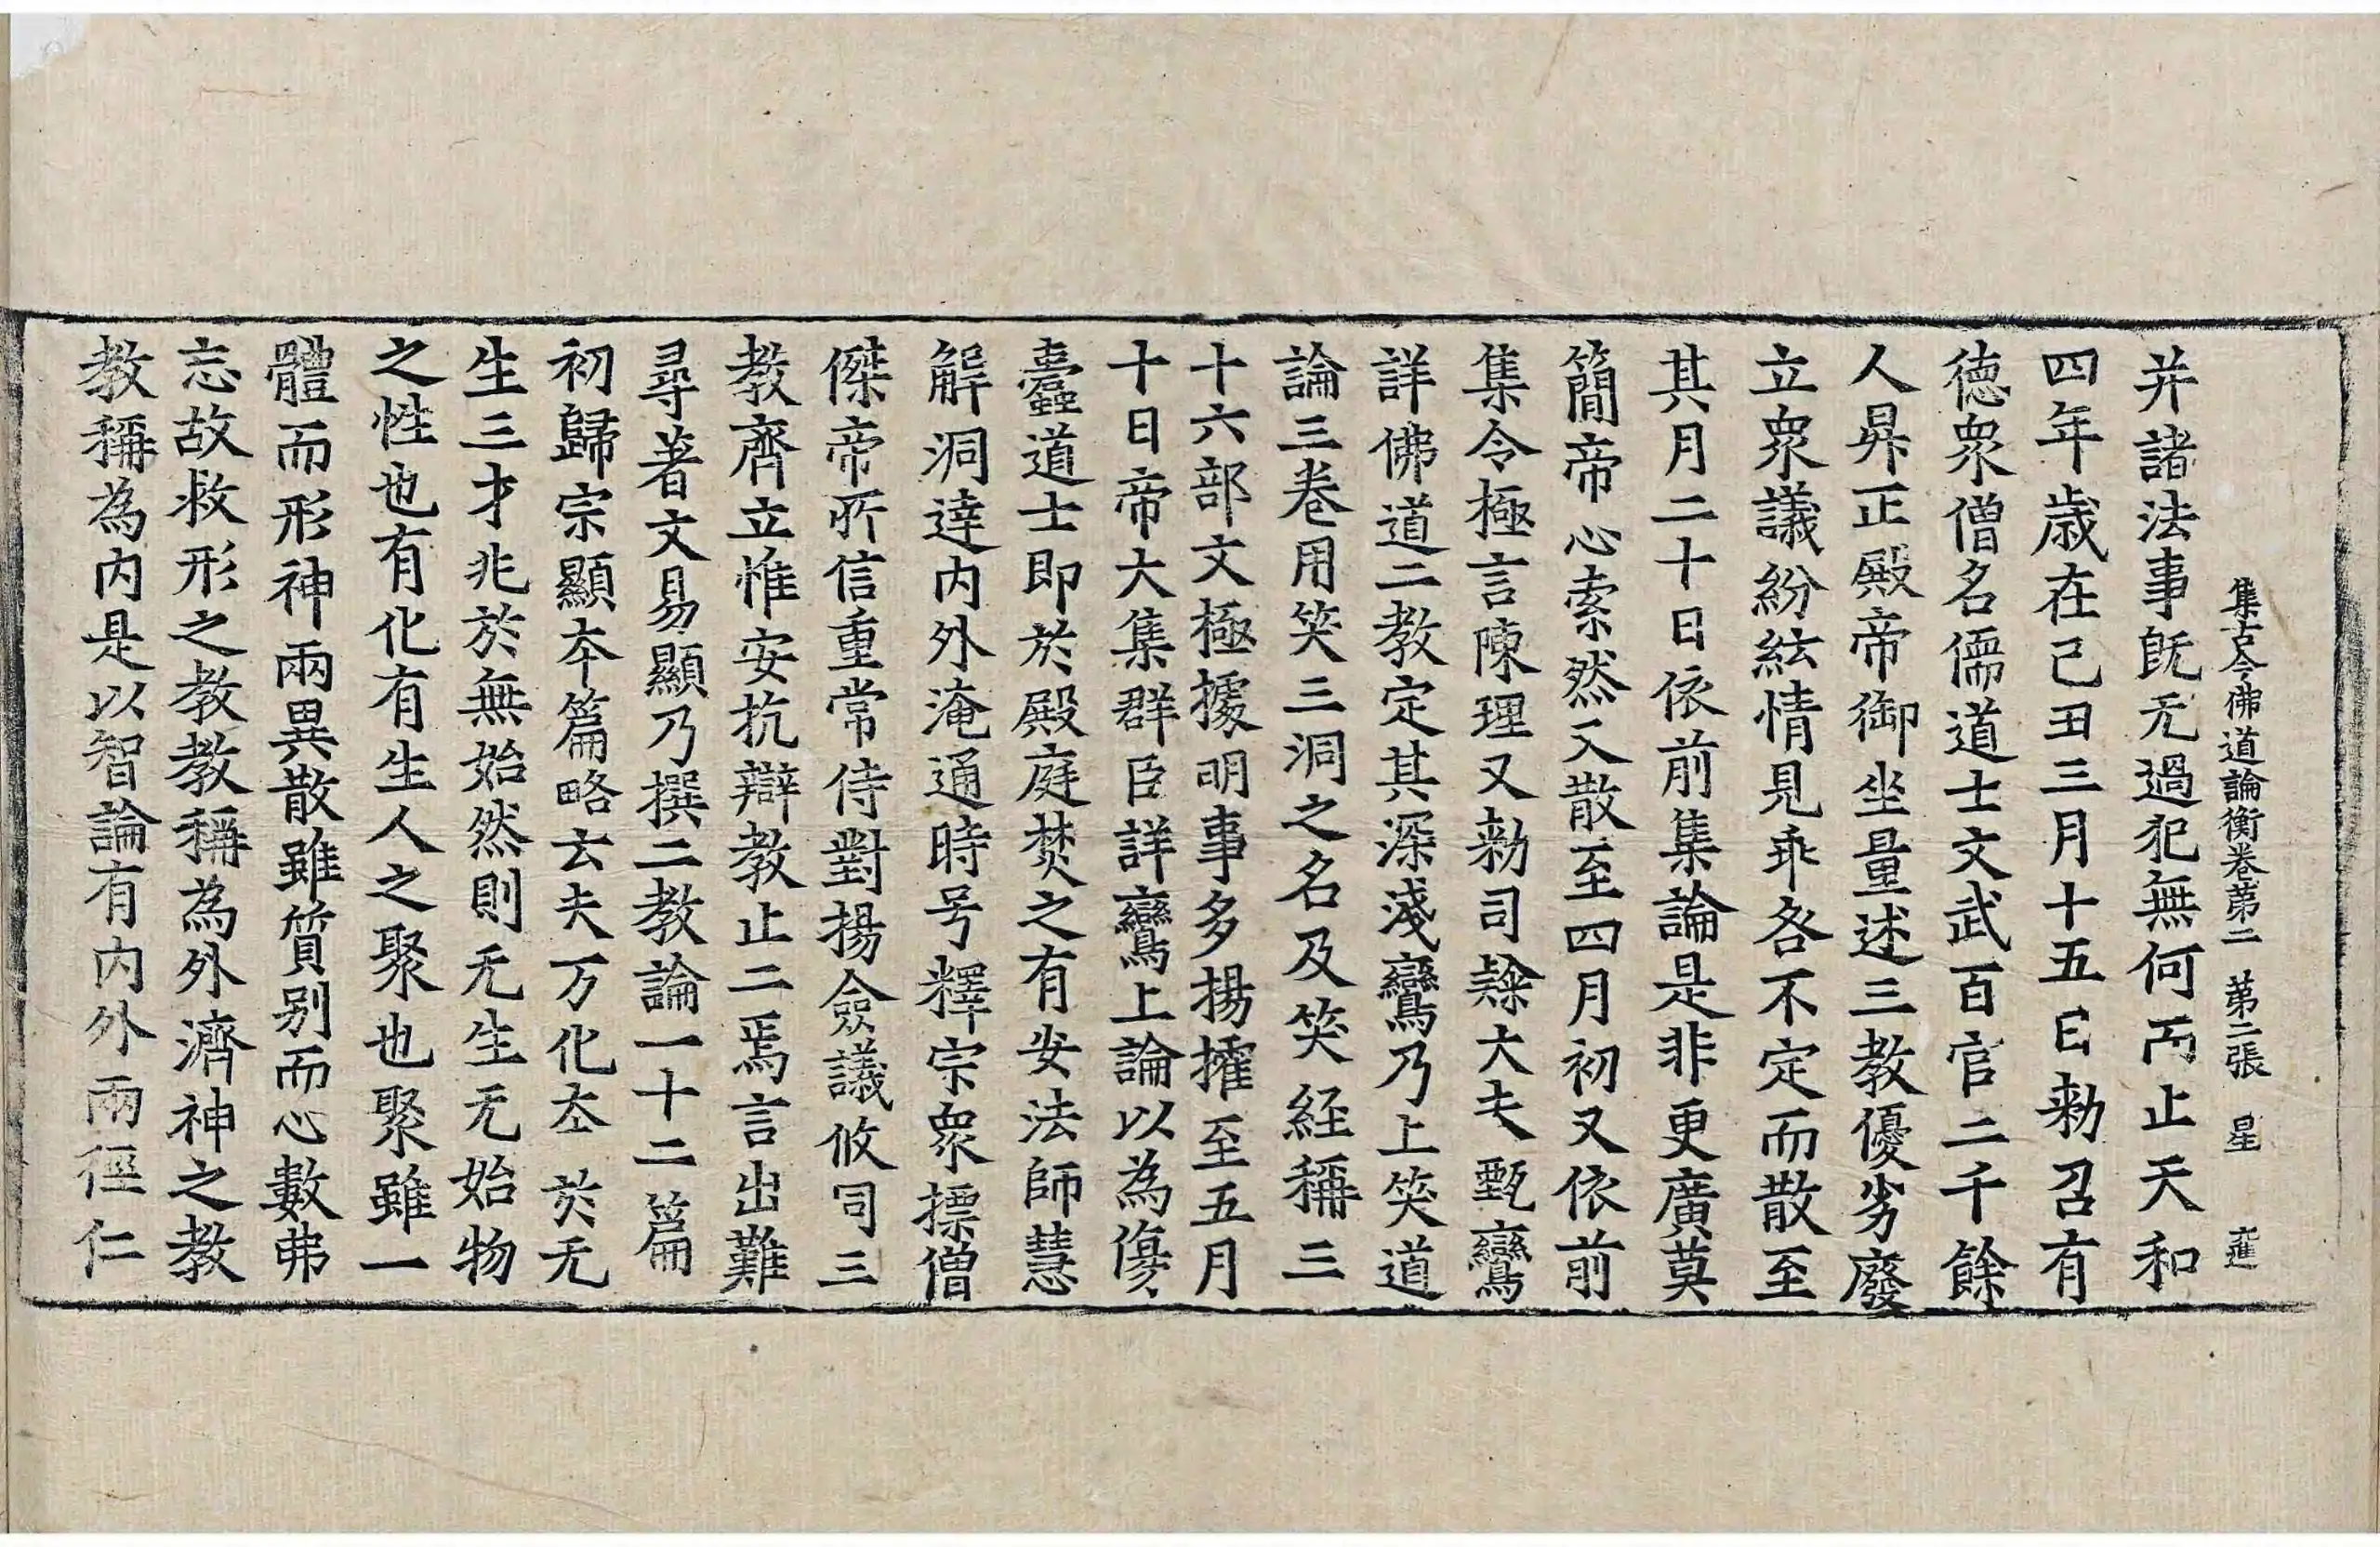 集古今佛道論衡卷苐二　苐二張　星　進
并諸法事旣无過犯無何而止天和
四年歳在己丑三月十五日勑召有
德衆僧名儒道士文武百官二千餘
人昇正殿帝御坐量述三教優劣廢
立衆議紛紜情見乖各不定而散至
其月二十日依前集論是非更廣莫
簡帝心索然又散至四月初又依前
集令極言陳理又勑司隸大夫甄鸞
詳佛道二教定其深淺鸞乃上笑道
論三卷用笑三洞之名及笑経稱三
十六部文極據明事多揚搉至五月
十日帝大集群臣詳鸞上論以為傷
蠹道士即於殿庭焚之有安法師慧
解洞達內外淹通時号釋宗衆摽僧
傑帝所信重常侍對揚僉議攸同三
教齊立惟安抗辯教止二焉言出難
尋著文易顯乃撰二教論一十二篇
初歸宗顯夲篇略云夫万化夲於无
生三才兆於無始然則无生无始物
之性也有化有生人之聚也聚雖一
體而形神兩異散雖質别而心數弗
忘故救形之教教稱為外濟神之教
教稱為內是以智論有內外兩徑仁